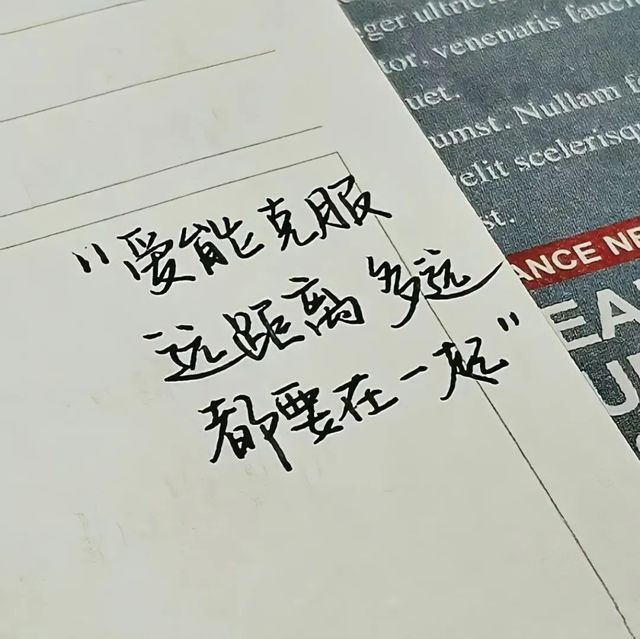 "爱能克服
远距离多远
都要在一起"
ger ultric
tor, venenatis fauci
uet.
umst. Nullam f
velit scelerisq
st.
ANCE NE
EA